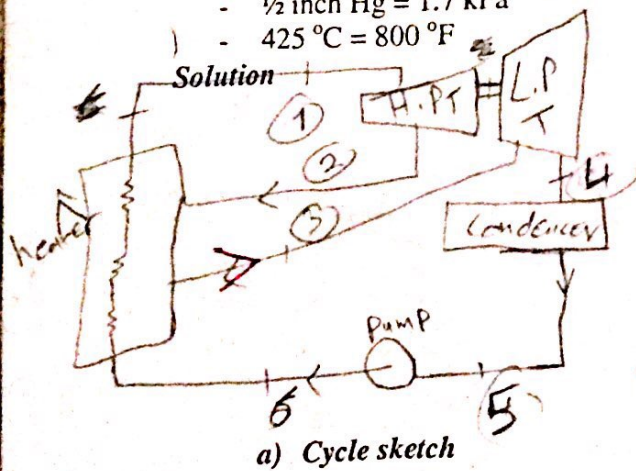 - ½ inch Hg = 1.7 kPa
- 425 °C = 800 °F
Solution
1
H.PT
L.P
T
2
3
4
heater
Condencer
Pump
6
5
a) Cycle sketch